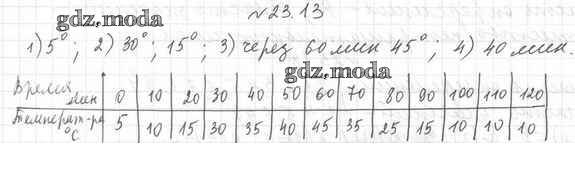 №23.13
gdz.moda
1) 5°; 2) 30°; 15°; 3) через 60 мин 45°; 4) 40 мин.
gdz.moda
Время мин 0 10 20 30 40 50 60 70 80 90 100 110 120
Температ-ра °C 5 10 15 30 35 40 45 35 25 15 10 10 10